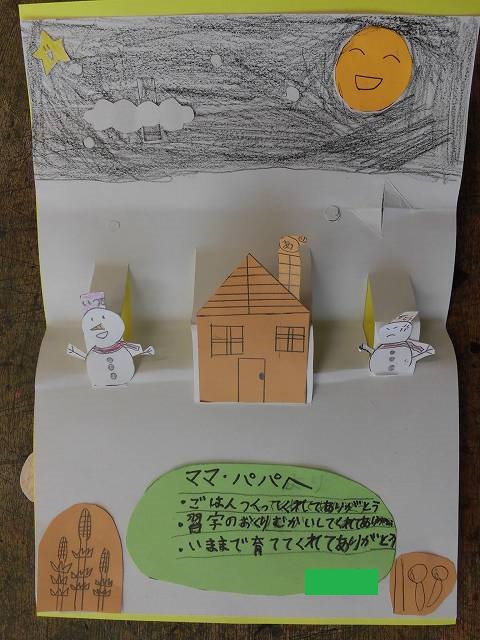 ママ・パパへ
・ごはんつくってくれてありがとう
・習字のおくりむかいしてくれてありがとう
・いままで育ててくれてありがとう